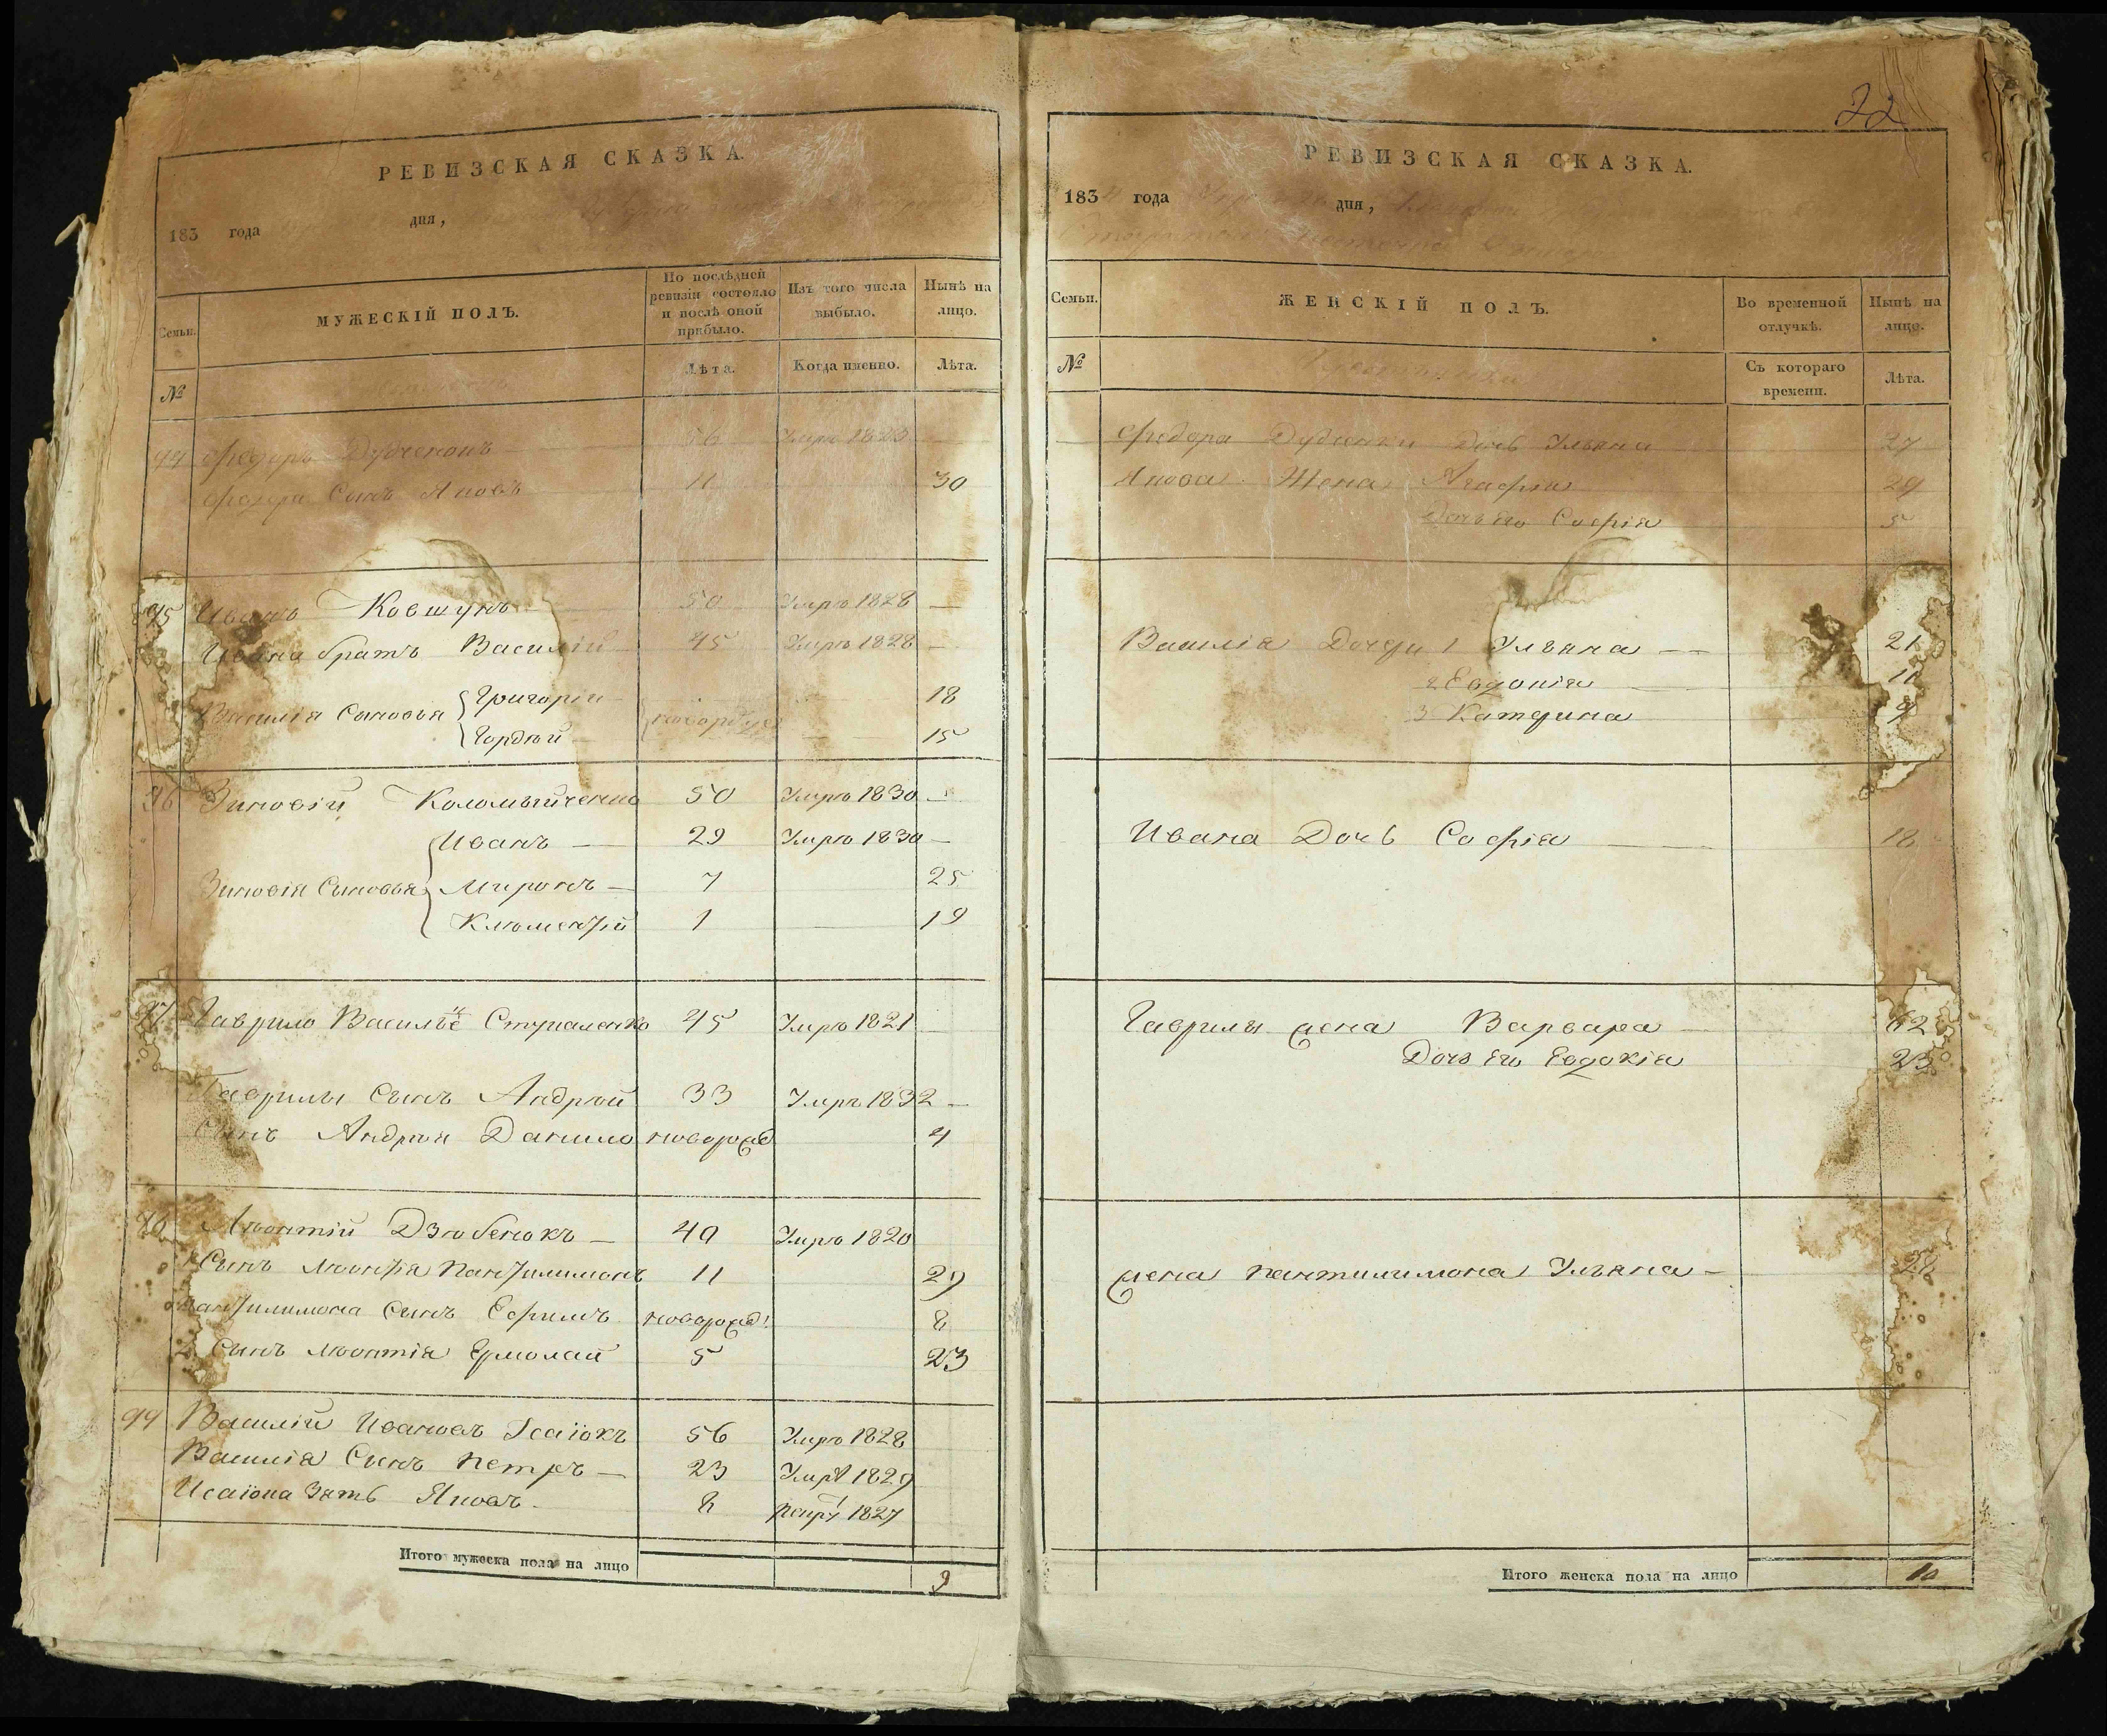 РЕВИЗСКАЯ СКАЗКА.
183 года дня,
Семьи. МУЖЕСКІЙ ПОЛЪ. По послѣдней ревизіи состояло и послѣ оной прибыло. Изъ того числа выбыло. Нынѣ на лицо.
№ Лѣта. Когда именно. Лѣта.
94 Федоръ Дубченокъ 56 Умре
Федора Сынъ Яковъ 11 30
95 Иванъ Ковшунъ 50 Умре 1828 —
Ивана братъ Василій 45 Умре 1828 —
Василія Сыновья Григорій 18
Гордѣй 15
96 Зиновій Коломыйченко 50 Умре 1830 —
Иванъ — 29 Умре 1830 —
Зиновія Сыновья Миронъ — 7 25
Клементій 1 19
97 Гаврило Стукаленко 45 Умре 1821
Гаврилы Сынъ Андрѣй 33 Умре 1832 —
Сынъ Андрѣя Данило новорожд 4
98 Леонтій Дзюбенокъ — 40 Умре 1820
Сынъ Леонтія Пантилимонъ 11 29
Пантилимона Сынъ Ефимъ новорожд 8
2 Сынъ Леонтія Ермолай 5 23
99 Василій Ивановъ Ісаіокъ 56 Умре 1828
Василія Сынъ Петръ — 23 Умре 1829
Исаіока Зять Яковъ 8 1827
Итого мужеска пола на лицо 9
22
РЕВИЗСКАЯ СКАЗКА.
183 года дня,
Семьи. ЖЕНСКІЙ ПОЛЪ. Во временной отлучкѣ. Нынѣ на лицо.
№ Съ котораго времени. Лѣта.
Федора Дубченка Дочь Ульяна 27
Якова Жена Агафія 29
Дочь Его Софія 5
Василія Дочери 1 Ульяна — 21
2 Евдокія 11
3 Катерина 9
Ивана Дочь Софія 18
Гаврилы жена Варвара 62
Дочь Его Евдокія 23
жена Пантилимона Ульяна —
Итого женска пола на лицо 10